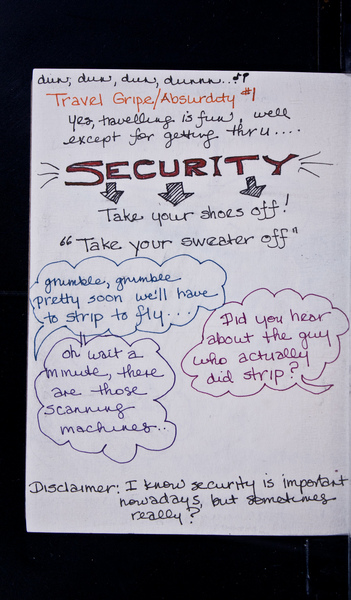 dun, dun, dun, dunnn...♪♪
Travel Gripe/Absurdity #1
Yes, travelling is fun, well
except for getting thru....
SECURITY
Take your shoes off!
"Take your sweater off"
grumble, grumble
pretty soon we'll have
to strip to fly...
Did you hear
about the guy
who actually
did strip?
oh wait a
minute, there
are those
scanning
machines..
Disclaimer: I know security is important
nowadays, but sometimes
really?